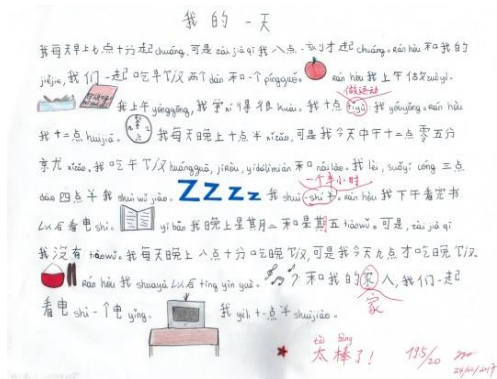 我的一天
我每天早上七点十分起chuáng，可是zài jià qī我八点一刻才起chuáng。Rán hòu和我的
jiějie，我们一起吃早饭两个dàn和一个píngguǒ。Rán hòu我上午做zuòyè。
做运动
我上午yóngyǒng，我学xí得很huài。我十点tǐyù我yóuyǒng。Rán hòu
我十二点huíjiā。我每天晚上十点半xǐzǎo，可是我今天中午十二点零五分
xǐzǎo。我吃午饭huángguā，jīròu，yìdàlìmiàn和nǎilào。我lèi，suǒyǐ cóng三点
dào四点半我shuì wǔ jiào。ZZZZ我shuì
一个半小时
Rán hòu我下午看完书
以后看电shì。yì bān我晚上星期二和星期五tiàowǔ。可是，zài jià qī
我没有tiàowǔ。我每天晚上八点十分吃晚饭，可是我今天九点才吃晚饭
Rán hòu我shuāyá以后tīng yīn yuè。和我的家人，我们一起
家
看电shì一个电yǐng。我yèlǐ十一点半shuìjiào。
tài bàng
太棒了！ 19.5/20
24/02/2017